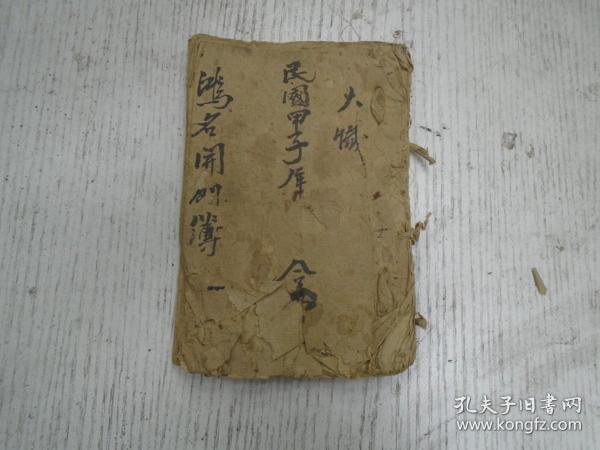 大懺
民國甲子年
念
鴻名開列簿
一
孔夫子旧书网
www.kongfz.com